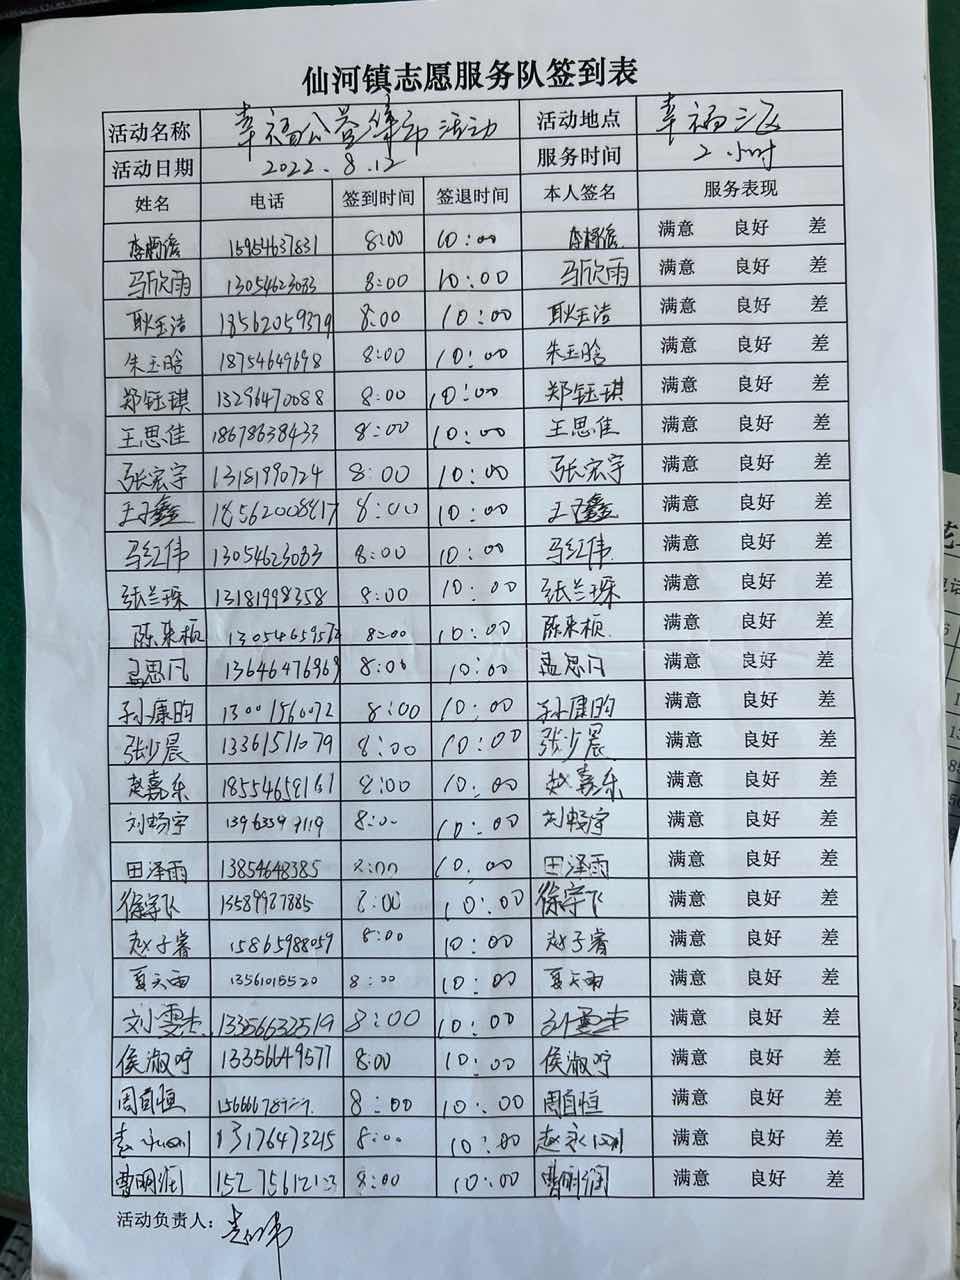 仙河镇志愿服务队签到表
活动名称 幸福公益集市活动 活动地点 幸福汇
活动日期 2022.8.12 服务时间 2小时
姓名 电话 签到时间 签退时间 本人签名 服务表现
15954637831 8:00 10:00 满意 良好 差
马欣雨 13054623083 8:00 10:00 马欣雨 满意 良好 差
耿玉洁 18562059379 8:00 10:00 耿玉洁 满意 良好 差
朱玉晗 18754649698 8:00 10:00 朱玉晗 满意 良好 差
郑钰琪 13296470088 8:00 10:00 郑钰琪 满意 良好 差
王思佳 18678638433 8:00 10:00 王思佳 满意 良好 差
张宏宇 13181990724 8:00 10:00 张宏宇 满意 良好 差
王子鑫 18562008817 8:00 10:00 王子鑫 满意 良好 差
马红伟 13054623083 8:00 10:00 马红伟 满意 良好 差
张兰琛 13181998358 8:00 10:00 张兰琛 满意 良好 差
陈来桢 8:00 10:00 陈来桢 满意 良好 差
孟思凡 13646476969 8:00 10:00 孟思凡 满意 良好 差
孙康昀 13001560072 8:00 10:00 孙康昀 满意 良好 差
张少晨 13361511079 8:00 10:00 张少晨 满意 良好 差
赵嘉乐 18554659161 8:00 10:00 赵嘉乐 满意 良好 差
刘畅宇 8:00 10:00 刘畅宇 满意 良好 差
田泽雨 13854648385 8:00 10:00 田泽雨 满意 良好 差
徐宇飞 13589987885 8:00 10:00 徐宇飞 满意 良好 差
赵子睿 15865988059 8:00 10:00 赵子睿 满意 良好 差
夏天雨 13561015520 8:00 10:00 夏天雨 满意 良好 差
刘雯杰 13356632519 8:00 10:00 刘雯杰 满意 良好 差
侯淑咛 13356649577 8:00 10:00 侯淑咛 满意 良好 差
周自恒 8:00 10:00 周自恒 满意 良好 差
13176473215 8:00 10:00 满意 良好 差
曹明润 15275612133 8:00 10:00 曹明润 满意 良好 差
活动负责人：